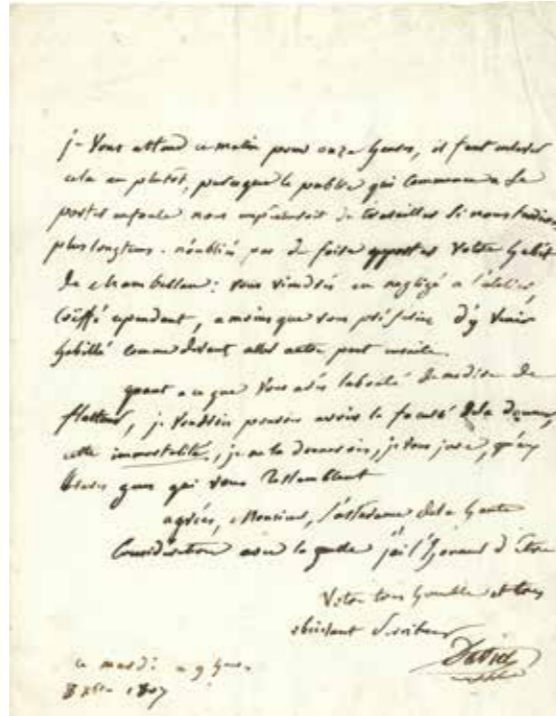 je vous attend ce matin pour onze heures, il faut enlever
cela au plutôt, puisque le public qui commence a se
porter en foule nous empêcheroit de travailler si nous tardions
plus longtems. n'oubliés pas de faire apporter votre habit
de chambellan: vous viendrés en negligé a l'atelier,
coëffé cependant, a moins que vous préferiez d'y venir
habillé comme devant aller autre part ensuite.
quant a ce que vous avés la bonté de me dire de
flatteur, je voudrois pouvoir avoir la faculté de la donner,
cette immortalité, je ne la donnerois, je vous jure, qu'aux
braves gens qui vous ressemblent
agréés, Monsieur, l'assurance de la haute
Considération avec laquelle j'ai l'honneur d'être
Votre tres humble et tres
obéissant Serviteur
David
ce mardi a 9 heures
8 xbre 1807